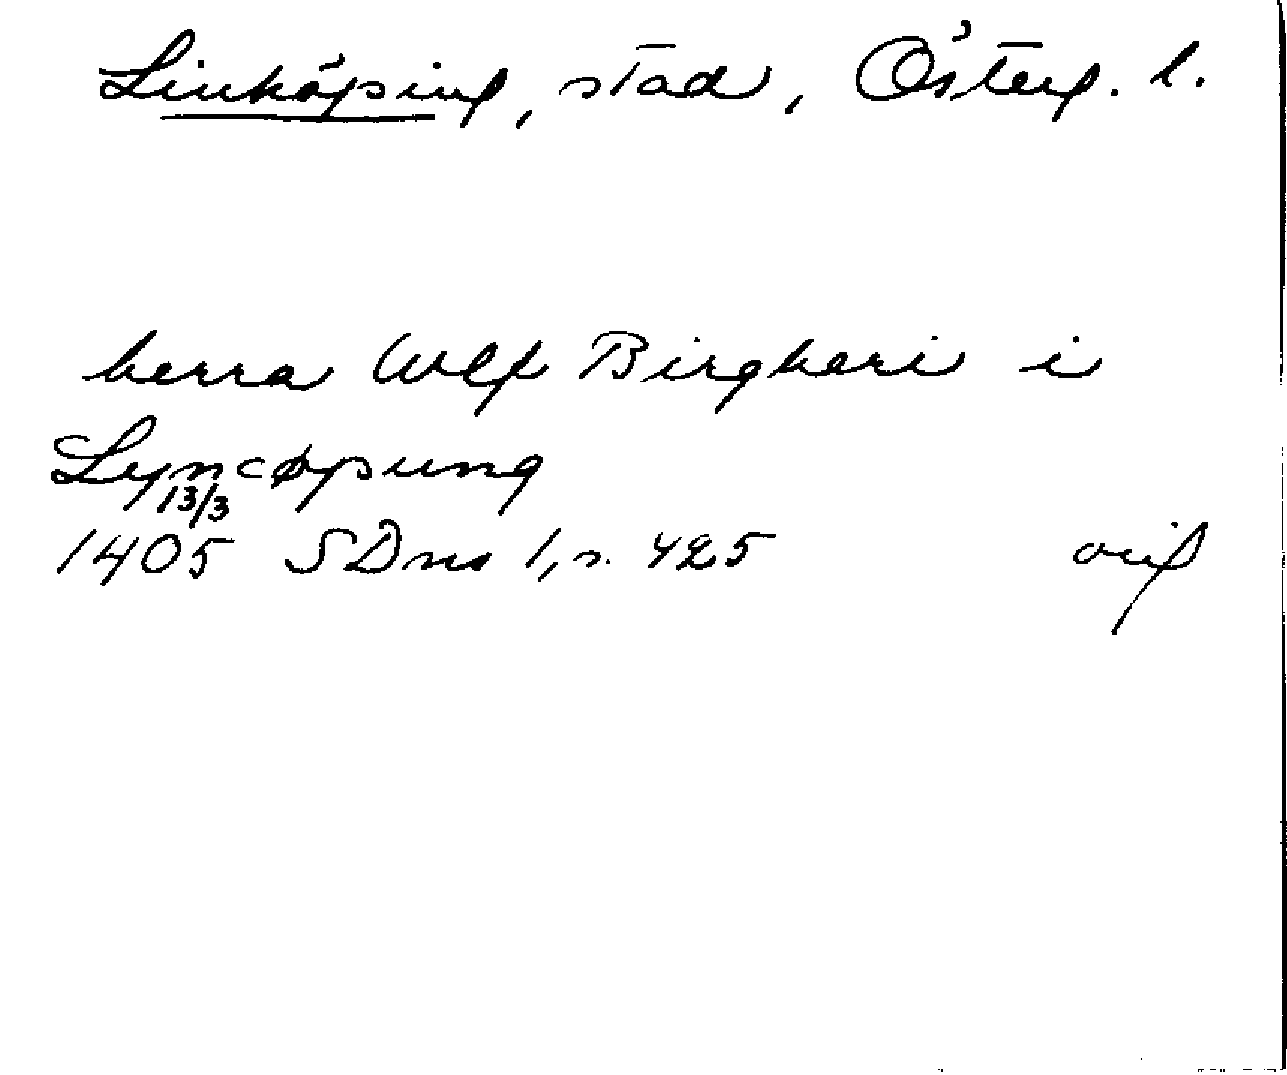 Linköping, stad, Österg. l.
herra Wlf Birgheri i
Lyncøpung
13/3
1405 SDns 1, s. 425 orig